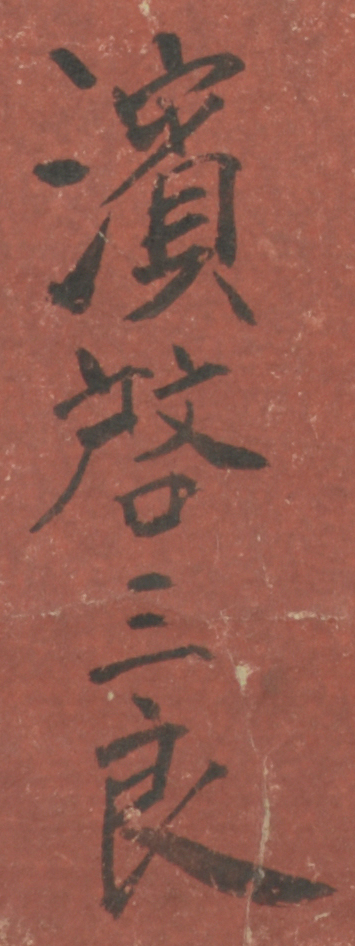 濱啓三良